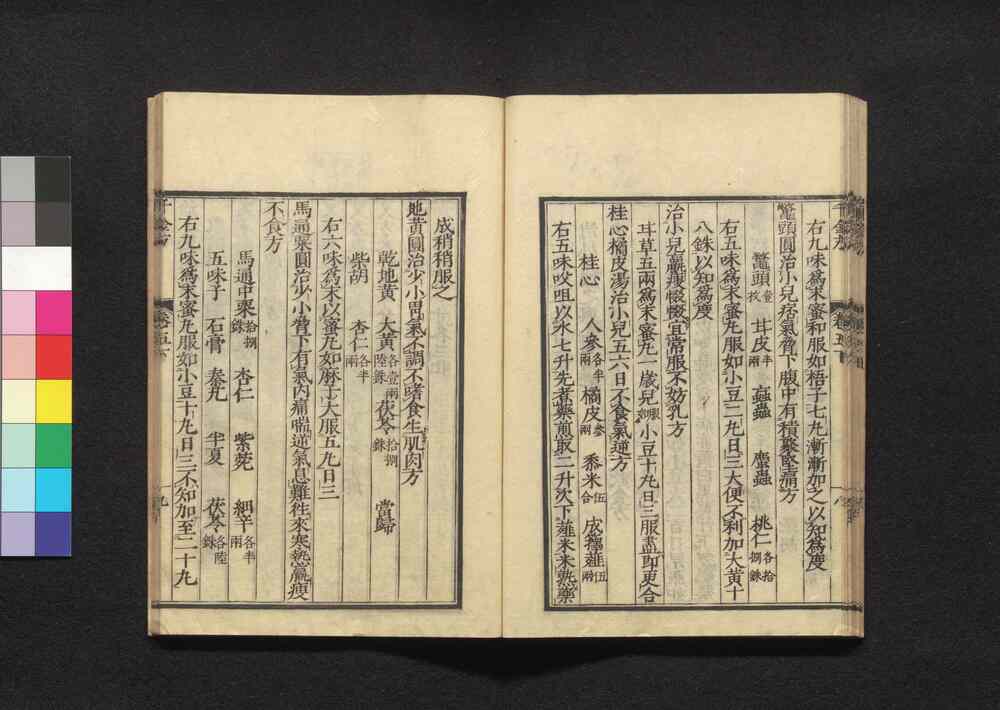 右九味為末蜜和服如梧子七丸漸漸加之以知為度
鼈頭圓治小兒痞氣脅下腹中有積聚堅痛方
鼈頭壹枚 甘皮半兩 䗪蟲 蠯蟲 桃仁各拾捌銖
右五味為末蜜丸服如小豆二丸日三大便不利加大黃十
八銖以知為度
治小兒羸瘦惙惙宜常服不妨乳方
甘草五兩為末蜜丸一歲兒服如小豆十丸日三服盡即更合
桂心橘皮湯治小兒五六日不食氣逆方
桂心 人參各半兩 橘皮參兩 黍米伍合 成擇薤伍兩
右五味㕮咀以水七升先煮藥煎取二升次下薤米米熟藥
成稍稍服之
地黃圓治少小胃氣不調不嗜食生肌肉方
乾地黃 大黃各壹兩陸銖 茯苓拾捌銖 當歸
柴胡 杏仁各半兩
右六味為末以蜜丸如麻子大服五丸日三
馬通粟圓治少小脅下有氣內痛喘逆氣息難往來寒熱羸瘦
不食方
馬通中粟拾捌銖 杏仁 紫菀 細辛各半兩
五味子 石膏 秦艽 半夏 茯苓各陸銖
右九味為末蜜丸服如小豆十丸日三不知加至二十丸
千金方
卷五下
九